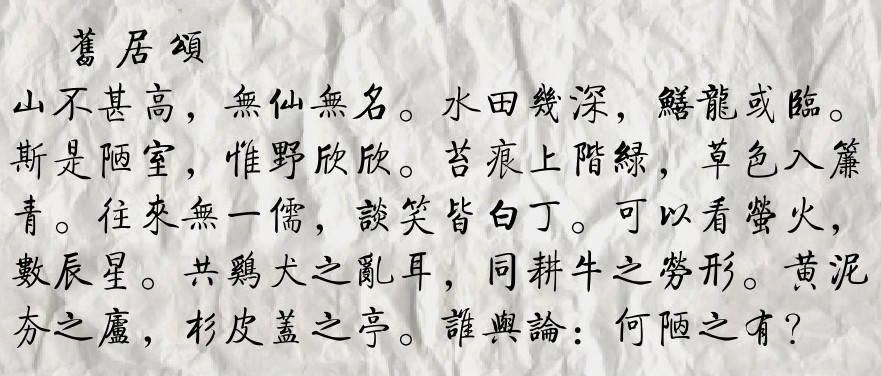 舊居頌
山不甚高，無仙無名。水田幾深，鱔龍或臨。
斯是陋室，惟野欣欣。苔痕上階緑，草色入簾
青。往來無一儒，談笑皆白丁。可以看螢火，
數辰星。共鷄犬之亂耳，同耕牛之勞形。黄泥
夯之廬，杉皮蓋之亭。誰與論：何陋之有？